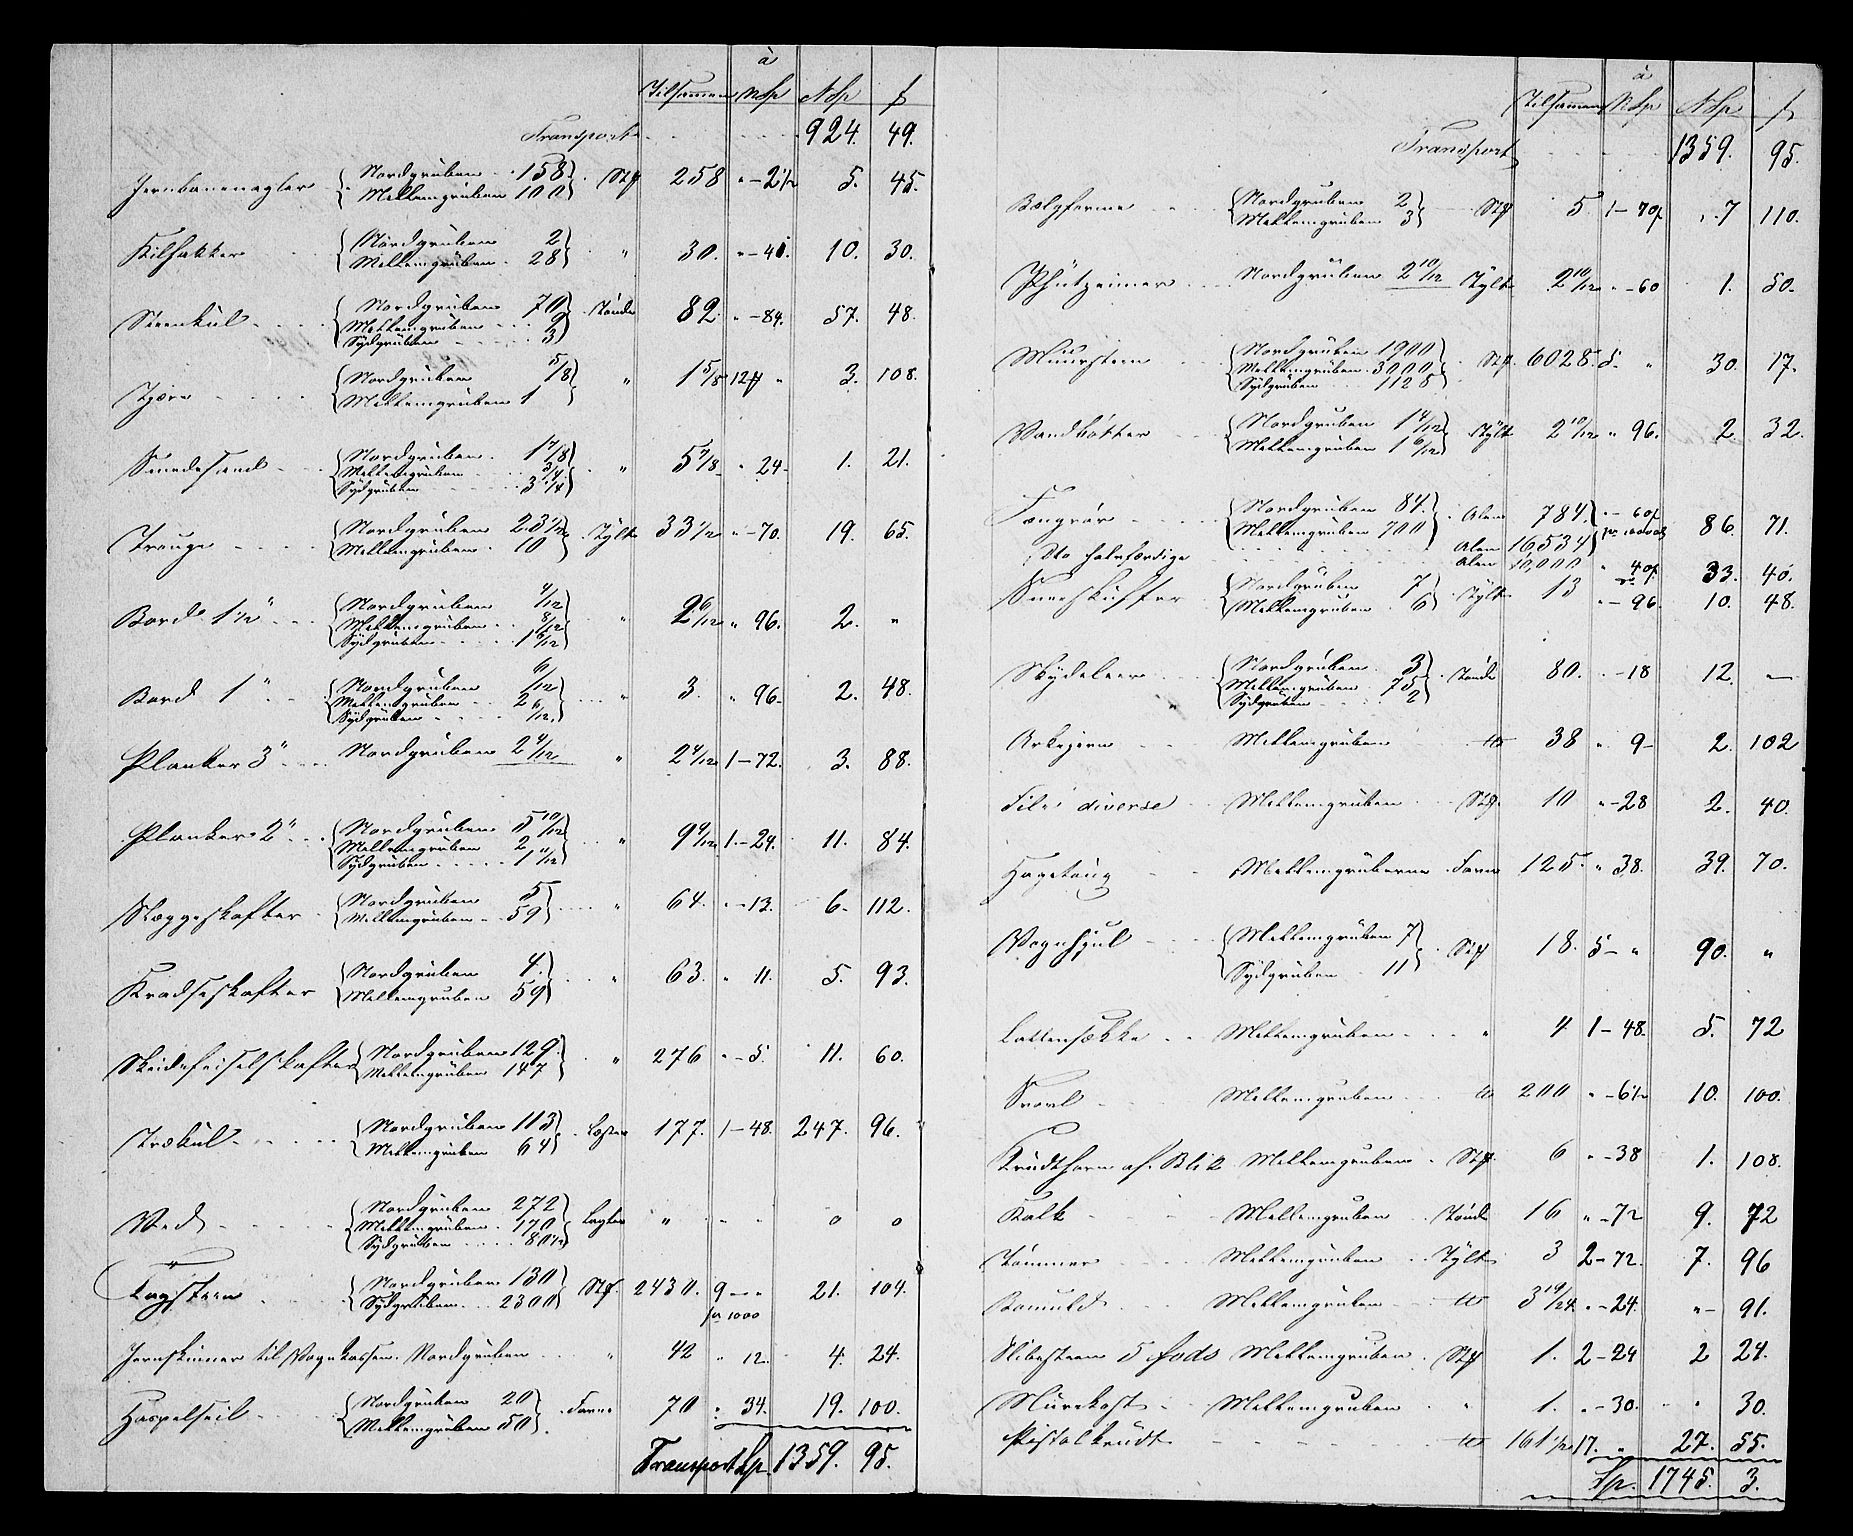 à
Tilsammen NSp NSp ſ
Transport 924. 49.
Jernbanenagler { Nordgruben 158 } Stk 258 " - 2 1/2 5. 45.
Mellemgruben 100
Nordgruben 2 } " 30. " - 41. 10. 30.
Mellemgruben 28
Steenkul { Nordgruben 70 } Tønder 82. " - 84. 57. 48.
Mellemgruben 9
Sydgruben 3
Tjære { Nordgruben 5/8 } " 1 5/8 12 " 3. 108.
Mellemgruben 1
Smedesand { Nordgruben 1 7/8 } " 5 7/8 " 24 - 1. 21.
Mellemgruben 3/4
Sydgruben 3 1/4
Trauge { Nordgruben 23 1/2 } Tylt 33 1/2 " - 70. 19. 65.
Mellemgruben 10
Bord 1 1/2" { Nordgruben 4/12 } " 2 6/12 " 96. 2. "
Mellemgruben 8/12
Sydgruben 1 6/12
Bord 1" { Nordgruben 6/12 } " 3. " 96. 2. 48.
Mellemgruben 2
Sydgruben 6/12
Planker 3" Nordgruben 2 4/12 " 2 4/12 1 - 72. 3. 88.
Planker 2" { Nordgruben 5 10/12 } " 9 4/12 1 - 24. 11. 84.
Mellemgruben 2
Sydgruben 1 6/12
Slæggeskafter { Nordgruben 5 } " 64. " - 13. 6. 112.
Mellemgruben 59
Kradseskafter { Nordgruben 4. } " 63. " 11. 5. 93.
Mellemgruben 59
Skeidefeiselskafter { Nordgruben 129. } " 276 " - 5. 11. 60.
Mellemgruben 147
Trækul { Nordgruben 113 } Læster 177. 1 - 48. 247. 96.
Mellemgruben 64
Ved { Nordgruben 272 } " " " o o
Mellemgruben 170
Sydgruben 80 1/2
Tagsteen { Nordgruben 130 } Stk. 2430. 9 - " 21. 104.
Sydgruben 2300 pr 1000
Jernskinner til Vognkassen. Nordgruben " 42 " 12. 4. 24.
Haspelseil { Nordgruben 20 } Favne 70 " 34. 19. 100.
Mellemgruben 50
Transport Sp 1359. 95.
à
Tilsammen NSp NSp ſ
Transport 1359. 95.
Nordgruben 2 } Stk 5 1 - 70 " 7 110.
Mellemgruben 3
Nordgruben 2 10/12 Tylt 2 10/12 " - 60 1. 50.
Muursteen { Nordgruben 1900 } Stk. 6028. 5. " 30. 17.
Mellemgruben 3000
Sydgruben 1128
Vandbøtter { Nordgruben 1 4/12 } Tylt 2 10/12 " 96. 2. 32.
Mellemgruben 1 6/12
Fængrør { Nordgruben 84. } Alen 784. " - 60 86. 71.
Mellemgruben 700
Do halvfærdige Alen 16534
Alen 10,000 " 40 33. 40.
Sneeskuffer { Nordgruben 7 } Tylt 13 " - 96. 10. 48.
Mellemgruben 6
Skydeleer { Nordgruben 3 } Tønde 80. " - 18 12. -
Mellemgruben 75
Sydgruben 2
Mellemgruben 38 " 9 - 2. 102
File diverse Mellemgruben Stk. 10 " - 28 2. 40.
Hagetoug Mellemgruberne Favne 125. " 38. 39. 70.
Vognhjul { Mellemgruben 7 } Stk 18. 5 - " 90. "
Sydgruben 11
Lattensække Mellemgruben " 4 1 - 48. 5. 72
Svovl Mellemgruben 200 " - 6 1/2 10. 100.
Krudthorn af Blik Mellemgruben Stk. 6 " - 38 1. 108.
Kalk Mellemgruben Tønde 16 " - 72 9. 72
Tømmer Mellemgruben Tylt 3 2 - 72. 7. 96
Bomuld Mellemgruben 3 19/24 " - 24. " - 91.
Slibesteen 5 fods Mellemgruben Stk 1. 2 - 24 2 24.
Murekost Mellemgruben " 1. " - 30. " 30.
Pistolkrudt 161 1/2 17. " 27. 55.
Sp. 1745. 3.